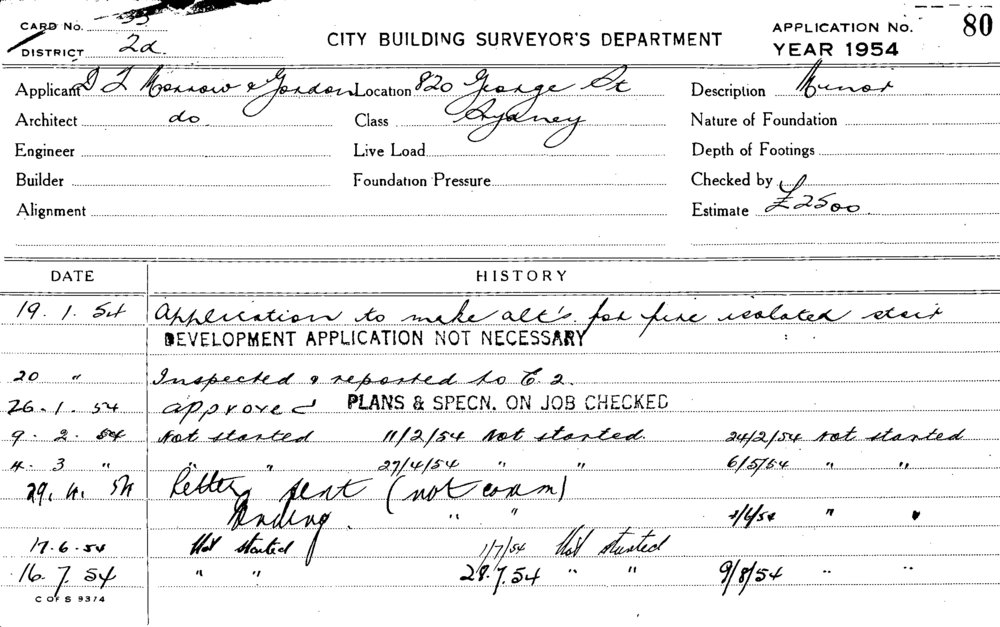 CARD No. 33
DISTRICT 2d.
CITY BUILDING SURVEYOR'S DEPARTMENT
APPLICATION No. 80
YEAR 1954
Applicant D T Morrow & Gordon Location 820 George St Description Minor
Architect do Class Sydney Nature of Foundation
Engineer Live Load Depth of Footings
Builder Foundation Pressure Checked by
Alignment Estimate £2500
DATE HISTORY
19. 1. 54 Application to make alt's. for fire isolated stair
DEVELOPMENT APPLICATION NOT NECESSARY
20 " Inspected & reported to E. 2.
26. 1. 54 approved PLANS & SPECN. ON JOB CHECKED
9. 2. 54 Not started 11/2/54 Not started. 24/2/54 Not started
4. 3 " " " 27/4/54 " " 6/5/54 " "
29. 4. 54 Letter sent (not comm)
Pending. " " 2/6/54 " "
17. 6. 54 Not started 1/7/54 Not started
16. 7. 54 " " 28. 7. 54 " " 9/8/54 " "
C OF S 9374